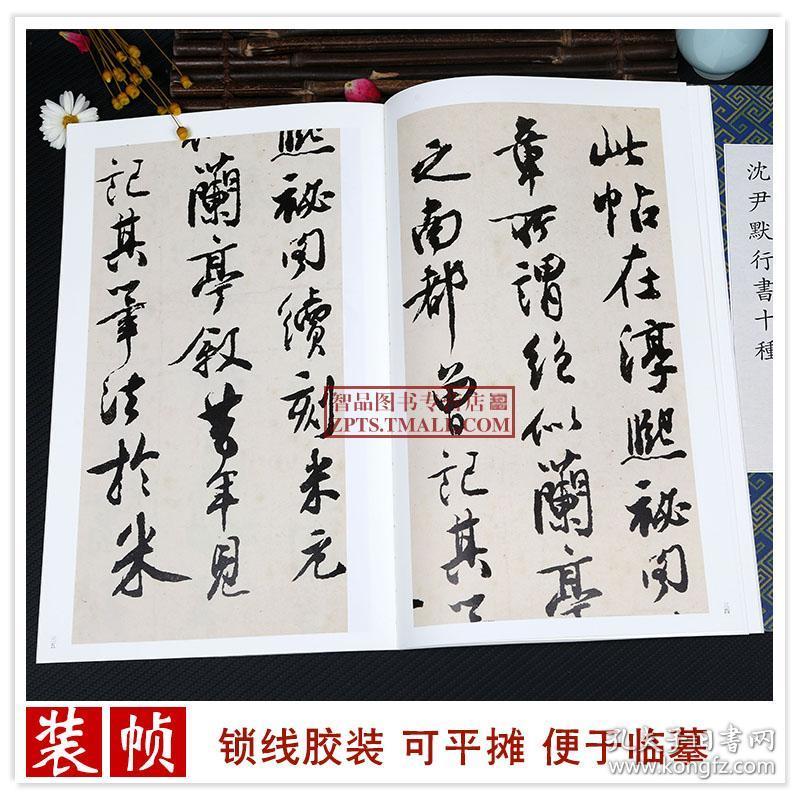 此帖在淳熙祕閣
章所謂絕似蘭亭
之南都曾記其
三四
熙祕閣續刻米元
蘭亭敘昔年見
記其筆法於米
三五
沈尹默行書十種
智品图书专营店
ZPTS.TMALL.COM
装帧 锁线胶装 可平摊 便于临墓
孔夫子旧书网
www.kongfz.com